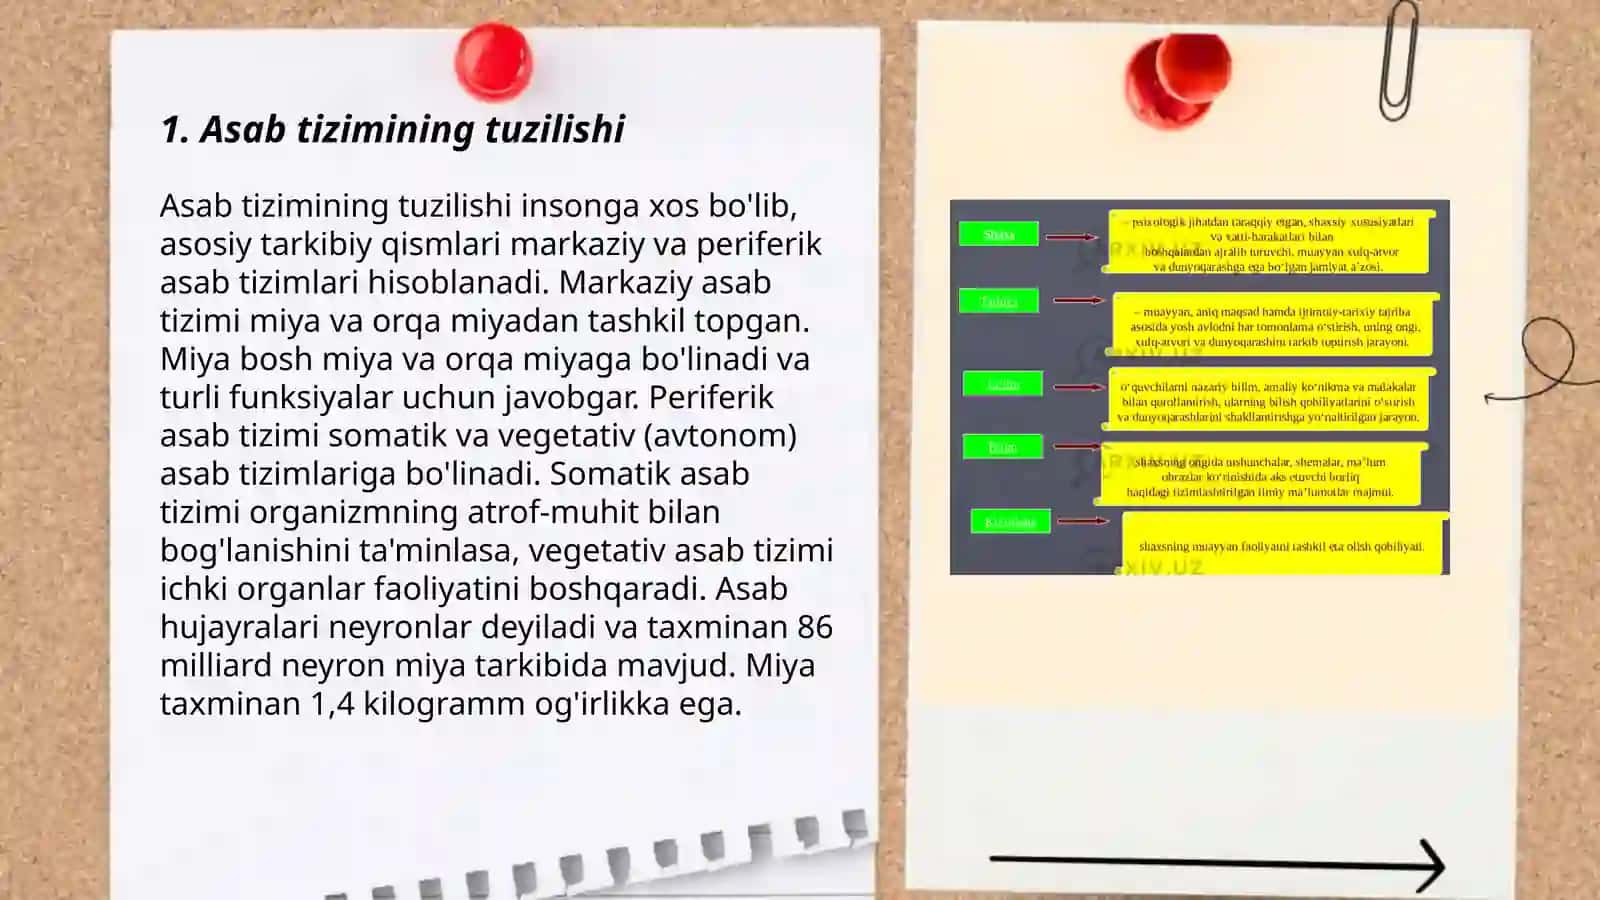 1. Asab tizimining tuzilishi
Asab tizimining tuzilishi insonga xos bo'lib,
asosiy tarkibiy qismlari markaziy va periferik
asab tizimlari hisoblanadi. Markaziy asab
tizimi miya va orqa miyadan tashkil topgan.
Miya bosh miya va orqa miyaga bo'linadi va
turli funksiyalar uchun javobgar. Periferik
asab tizimi somatik va vegetativ (avtonom)
asab tizimlariga bo'linadi. Somatik asab
tizimi organizmning atrof-muhit bilan
bog'lanishini ta'minlasa, vegetativ asab tizimi
ichki organlar faoliyatini boshqaradi. Asab
hujayralari neyronlar deyiladi va taxminan 86
milliard neyron miya tarkibida mavjud. Miya
taxminan 1,4 kilogramm og'irlikka ega.
Shaxs
– psixologik jihatdan taraqqiy etgan, shaxsiy xususiyatlari
va xatti-harakatlari bilan
boshqalardan ajralib turuvchi, muayyan xulq-atvor
va dunyoqarashga ega bo‘lgan jamiyat a’zosi.
– muayyan, aniq maqsad hamda ijtimoiy-tarixiy tajriba
asosida yosh avlodni har tomonlama o‘stirish, uning ongi,
xulq-atvori va dunyoqarashini tarkib toptirish jarayoni.
o‘quvchilarni nazariy bilim, amaliy ko‘nikma va malakalar
bilan qurollantirish, ularning bilish qobiliyatlarini o‘stirish
va dunyoqarashlarini shakllantirishga yo‘naltirilgan jarayon.
Bilim
shaxsning ongida tushunchalar, shemalar, ma’lum
obrazlar ko‘rinishida aks etuvchi borliq
haqidagi tizimlashtirilgan ilmiy ma’lumotlar majmui.
shaxsning muayyan faoliyatni tashkil eta olish qobiliyati.
ARXIV.UZ